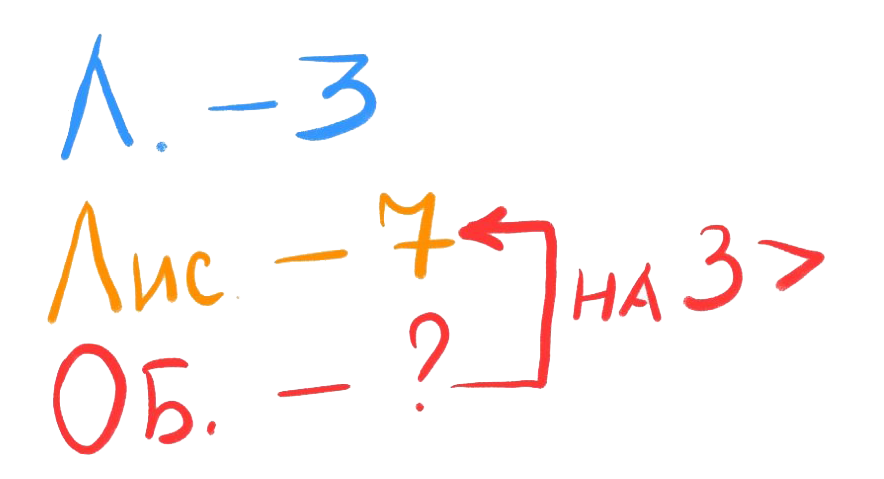 Л. - 3
Лис. - 7
Об. - ? на 3 >